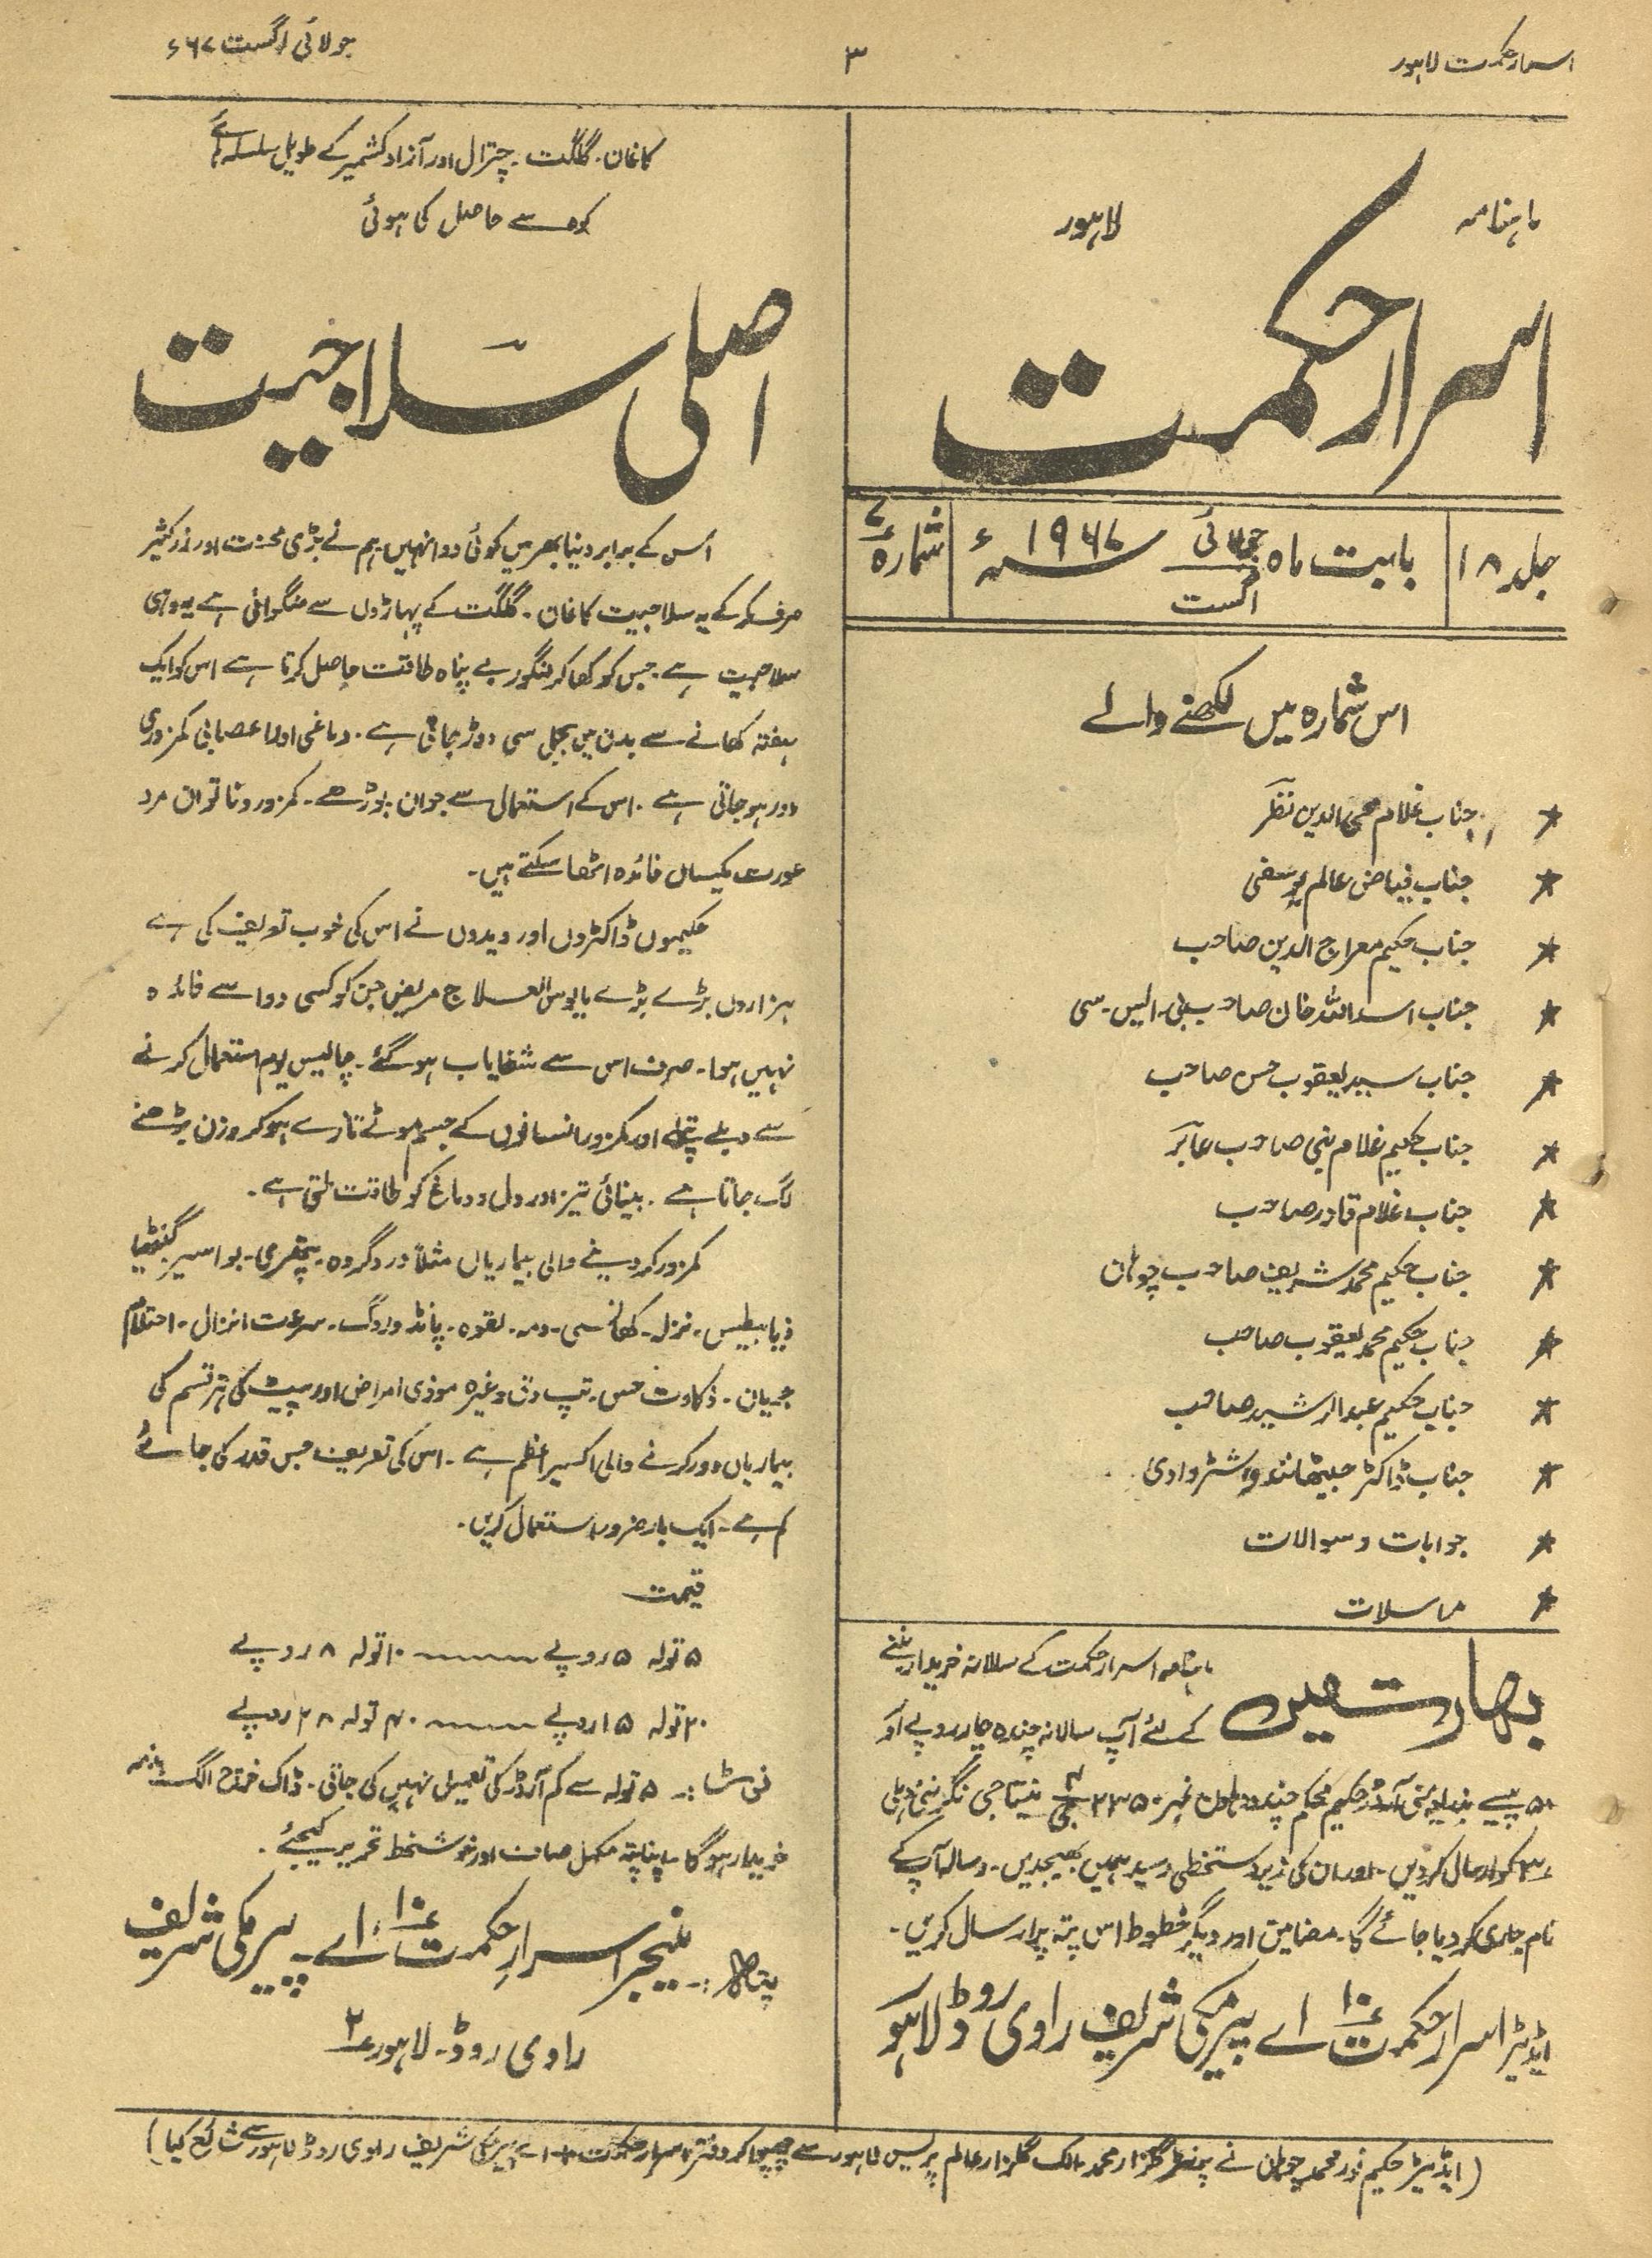 اسرار حکمت لاہور
۳
جولائی اگست ۶۷ء
ماہنامہ
لاہور
اسرار حکمت
جلد ۱۸
بابت ماہ جولائی اگست ۱۹۶۷ء
شمارہ ۷
اس شمارہ میں لکھنے والے
★ جناب غلام محی الدین نظر
★ جناب فیاض عالم یوسفی
★ جناب حکیم معراج الدین صاحب
★ جناب اسد اللہ خان صاحب بی۔ ایس۔ سی
★ جناب سید یعقوب حسن صاحب
★ جناب حکیم غلام نبی صاحب عابر
★ جناب غلام قادر صاحب
★ جناب حکیم محمد شریف صاحب چوہان
★ جناب حکیم محمد یعقوب صاحب
★ جناب حکیم عبدالرشید صاحب
★ جناب ڈاکٹر جیٹھانند
★ جوابات و سوالات
★ مراسلات
بھارت میں
ماہنامہ اسرار حکمت کے سالانہ خریدار بننے
کے لئے آپ سالانہ چندہ چار روپے اور
۵۰ پیسے بذریعہ منی آرڈر حکیم محکم چند نمبر ۲۳۵۰ نیتا جی نگر نئی دہلی
۳ کو ارسال کر دیں۔ اور ان کی زیر دستخطی رسید ہمیں بھیجدیں۔ رسالہ آپ کے
نام جاری کر دیا جائے گا۔ مضامین اور دیگر خطوط اس پتہ پر ارسال کریں۔
ایڈیٹر اسرار حکمت ۱۰ اے پیر مکی شریف راوی روڈ لاہور
کاغان۔ گلگت۔ چترال اور آزاد کشمیر کے طویل سلسلہ ہائے
کوہ سے حاصل کی ہوئی
اصلی سلاجیت
اُس کے برابر دنیا بھر میں کوئی دوا نہیں ہم نے بڑی محنت اور زر کثیر
صرف کر کے یہ سلاجیت کاغان۔ گلگت کے پہاڑوں سے منگوائی ہے یہ وہی
سلاجیت ہے۔ جس کو کھا کر لنگور بے پناہ طاقت حاصل کرتا ہے اس کو ایک
ہفتہ کھانے سے بدن میں بجلی سی دوڑ جاتی ہے۔ دماغی اور اعصابی کمزوری
دور ہو جاتی ہے۔ اس کے استعمال سے جوان۔ بوڑھے۔ کمزور و ناتوان مرد
عورت یکساں فائدہ اٹھا سکتے ہیں۔
حکیموں ڈاکٹروں اور ویدوں نے اس کی خوب تعریف کی ہے
ہزاروں بڑے بڑے مایوس العلاج مریض جن کو کسی دوا سے فائدہ
نہیں ہوا۔ صرف اس سے شفایاب ہو گئے۔ چالیس یوم استعمال کرنے
سے دبلے پتلے اور کمزور انسانوں کے جسم موٹے تازے ہو کر وزن بڑھنے
لگ جاتا ہے۔ بینائی تیز اور دل و دماغ کو طاقت ملتی ہے۔
کمزور کر دینے والی بیماریاں مثلاً درد گردہ۔ پتھری۔ بواسیر گنٹھیا
ذیابیطیس۔ نزلہ۔ کھانسی۔ دمہ۔ لقوہ۔ پانڈو روگ۔ سرعت انزال۔ احتلام
جریان۔ ذکاوت حس۔ تپ دق وغیرہ موذی امراض اور پیٹ کی ہر قسم کی
بیماریاں دور کرنے والی اکسیر اعظم ہے۔ اس کی تعریف جس قدر کی جائے
کم ہے۔ ایک بار ضرور استعمال کریں۔
قیمت
۵ تولہ ۵ روپے ـــــ ۱۰ تولہ ۸ روپے
۲۰ تولہ ۱۵ روپے ـــــ ۴۰ تولہ ۲۸ روپے
نوٹ:۔ ۵ تولہ سے کم آرڈر کی تعمیل نہیں کی جاتی۔ ڈاک خرچ الگ بذمہ
خریدار ہو گا۔ اپنا پتہ مکمل صاف اور خوشخط تحریر کیجئے۔
پتہ:۔ منیجر اسرارِ حکمت ۱۰ اے۔ پیر مکی شریف
راوی روڈ۔ لاہور ۲
(ایڈیٹر حکیم نور محمد چوہان نے پرنٹر گلزار محمد مالک گلزار عالم پریس لاہور سے چھپوا کر دفتر اسرار حکمت ۱۰ اے پیر مکی شریف راوی روڈ لاہور سے شائع کیا)